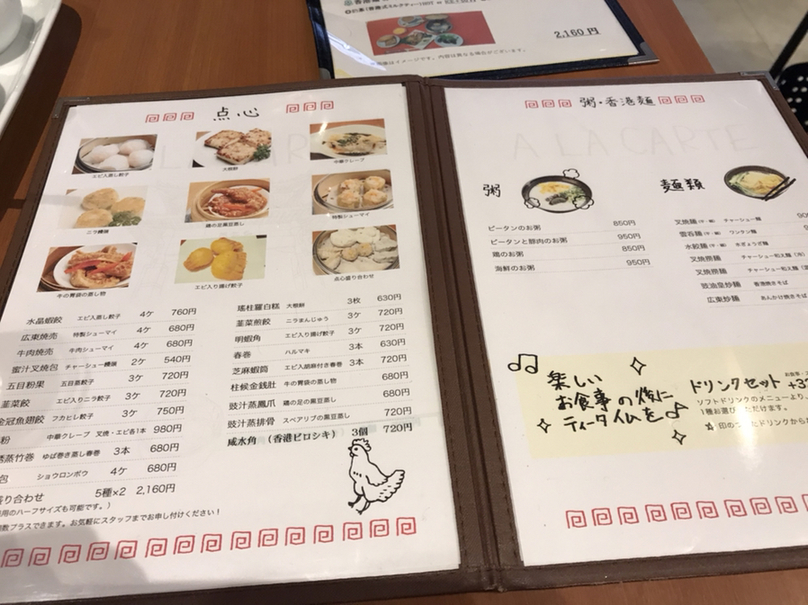 2,160円
点心
エビ入蒸し餃子
大根餅
中華クレープ
ニラ饅頭
鶏の足黒豆蒸し
特製シューマイ
牛の胃袋の蒸し物
エビ入り揚げ餃子
点心盛り合わせ
水晶蝦餃 エビ入蒸し餃子 4ケ 760円
広東焼売 特製シューマイ 4ケ 680円
牛肉焼売 牛肉シューマイ 4ケ 680円
蜜汁叉焼包 チャーシュー饅頭 2ケ 540円
五目粉果 五目蒸餃子 3ケ 720円
韮菜餃 エビ入りニラ餃子 3ケ 720円
金冠魚翅餃 フカヒレ餃子 3ケ 750円
粉 中華クレープ 叉焼・エビ各1本 980円
蒸竹巻 ゆば巻き蒸し春巻 3本 680円
包 ショウロンポウ 4ケ 680円
盛り合わせ 5種×2 2,160円
用のハーフサイズも可能です。)
数プラスできます。お気軽にスタッフまでお申し付けください!
瑤柱羅白糕 大根餅 3枚 630円
韮菜煎餃 ニラまんじゅう 3ケ 720円
明蝦角 エビ入り揚げ餃子 3ケ 720円
春巻 ハルマキ 3本 630円
芝麻蝦筒 エビ入胡麻付き春巻 3本 720円
柱候金銭肚 牛の胃袋の蒸し物 680円
豉汁蒸鳳爪 鶏の足の黒豆蒸し 680円
豉汁蒸排骨 スペアリブの黒豆蒸し 720円
咸水角 (香港ピロシキ) 3個 720円
粥・香港麺
A LA CARTE
粥
ピータンのお粥 850円
ピータンと豚肉のお粥 950円
鶏のお粥 850円
海鮮のお粥 950円
麺類
叉焼麺 チャーシュー麺
雲呑麺 ワンタン麺
水餃麺
叉焼撈麺 チャーシュー和え麺
叉焼撈麺 チャーシュー和え麺
豉油皇炒麺 香港焼きそば
広東炒麺 あんかけ焼きそ
楽しい
お食事の後に
ティータイムを♪
ドリンクセット +3
ソフトドリンクのメニューより、
1種お選びいただけます。
印のついたドリンクから